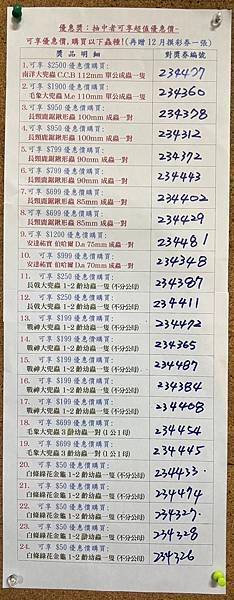 優惠獎：抽中者可享超值優惠價-
可享優惠價,購買以下蟲種!(再贈12月摸彩券一張)
獎品明細 對獎券編號
1.可享 $2500 優惠價購買:
南洋大兜蟲 C.C.B 112mm 單公成蟲一隻 234427
2. 可享 $1900 優惠價購買:
毛象大兜蟲 M.e 110mm 單公成蟲一隻 234360
3. 可享 $950 優惠價購買:
長頸鹿鋸鍬形蟲 100mm 成蟲一對 234378
4. 可享 $950 優惠價購買:
長頸鹿鋸鍬形蟲 100mm 成蟲一對 234312
5. 可享 $799 優惠價購買:
長頸鹿鋸鍬形蟲 90mm 成蟲一對 234372
6. 可享 $799 優惠價購買:
長頸鹿鋸鍬形蟲 90mm 成蟲一對 234443
7. 可享 $699 優惠價購買:
長頸鹿鋸鍬形蟲 85mm 成蟲一對 234402
8. 可享 $699 優惠價購買:
長頸鹿鋸鍬形蟲 85mm 成蟲一對 234429
9. 可享 $1200 優惠價購買:
安達祐實 伯哈爾 D.a 75mm 成蟲一對 234481
10. 可享 $999 優惠價購買:
安達祐實 伯哈爾 D.a 70mm 成蟲一對 234348
11. 可享 $250 優惠價購買:
長戟大兜蟲 1-2 齡幼蟲一隻 (不分公母) 234387
12. 可享 $250 優惠價購買:
長戟大兜蟲 1-2 齡幼蟲一隻 (不分公母) 234411
13. 可享 $199 優惠價購買:
戰神大兜蟲 1-2 齡幼蟲一隻 (不分公母) 234472
14. 可享 $199 優惠價購買:
戰神大兜蟲 1-2 齡幼蟲一隻 (不分公母) 234365
15. 可享 $199 優惠價購買:
戰神大兜蟲 1-2 齡幼蟲一隻 (不分公母) 234487
16. 可享 $199 優惠價購買:
戰神大兜蟲 1-2 齡幼蟲一隻 (不分公母) 234384
17. 可享 $199 優惠價購買:
戰神大兜蟲 1-2 齡幼蟲一隻 (不分公母) 234408
18. 可享 $699 優惠價購買:
毛象大兜蟲 3 齡幼蟲一對 (1 公 1 母) 234454
19. 可享 $699 優惠價購買:
毛象大兜蟲 3 齡幼蟲一對 (1 公 1 母) 234445
20. 可享 $50 優惠價購買:
白條綠花金龜 1-2 齡幼蟲一隻 (不分公母) 234433
21. 可享 $50 優惠價購買:
白條綠花金龜 1-2 齡幼蟲一隻 (不分公母) 234474
22. 可享 $50 優惠價購買:
白條綠花金龜 1-2 齡幼蟲一隻 (不分公母) 234327
23. 可享 $50 優惠價購買:
白條綠花金龜 1-2 齡幼蟲一隻 (不分公母) 234328
24. 可享 $50 優惠價購買:
白條綠花金龜 1-2 齡幼蟲一隻 (不分公母) 234326